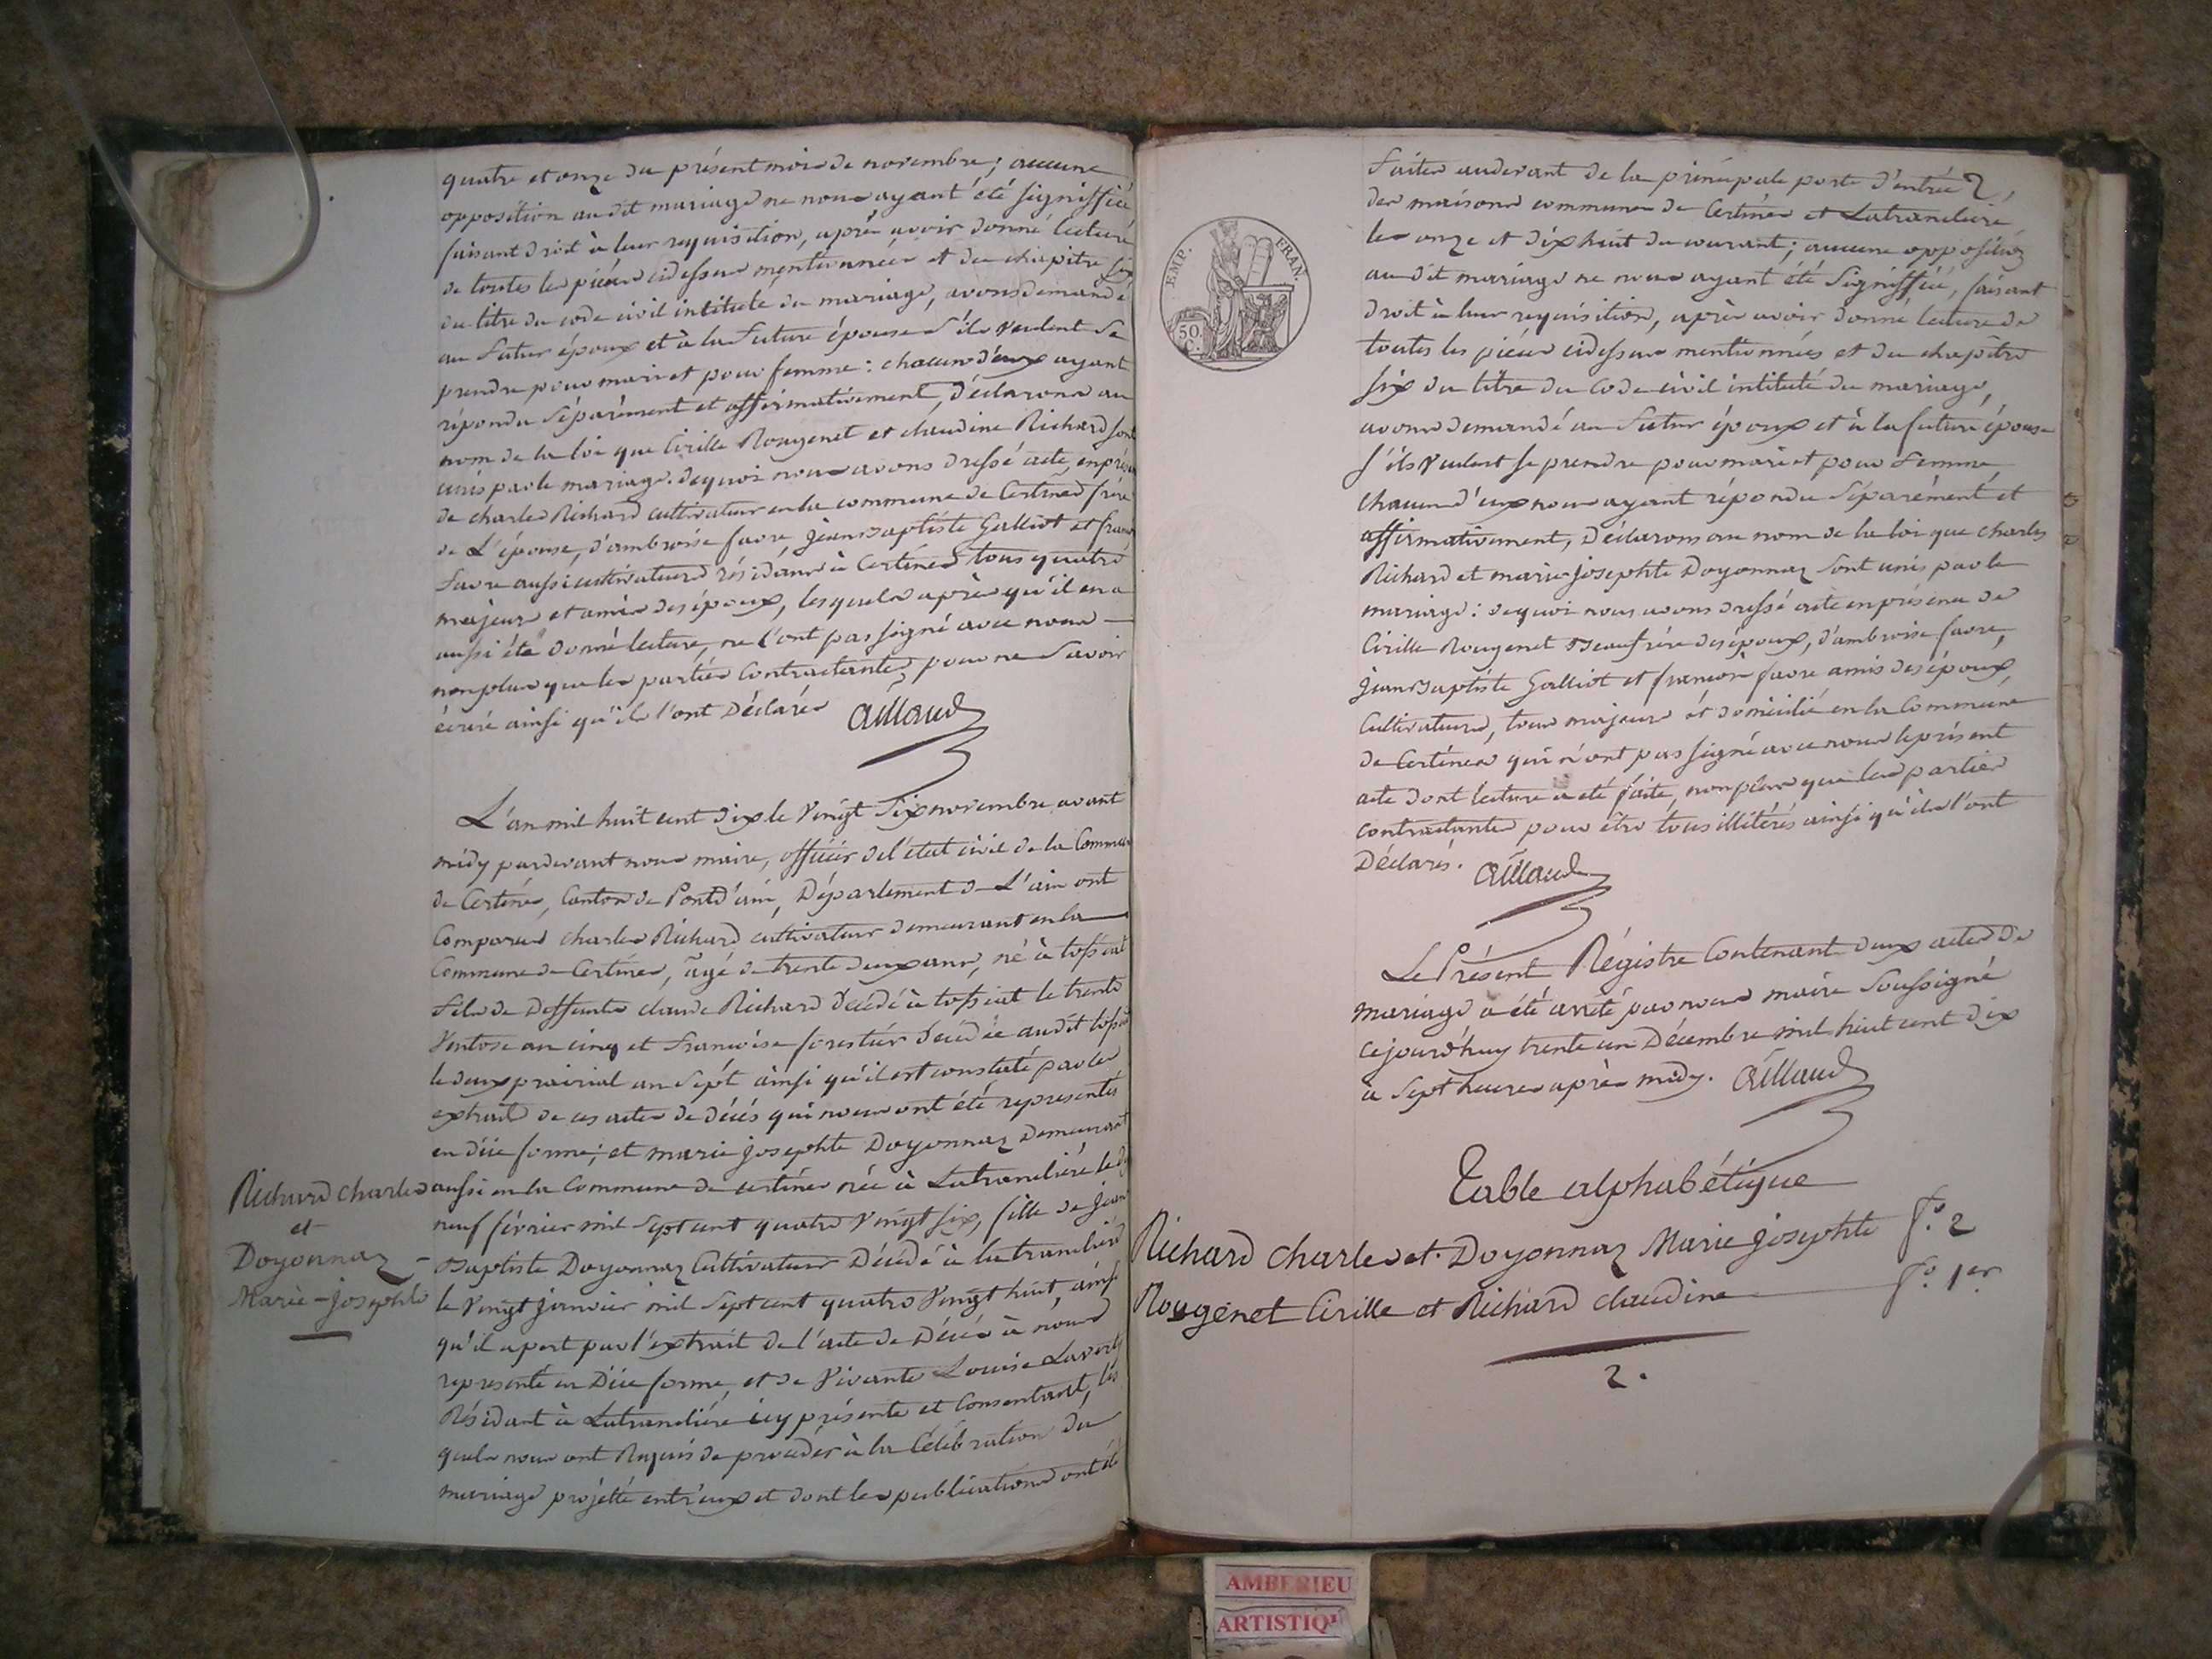 quatre et onze du présent mois de novembre; aucune
opposition au dit mariage ne nous ayant été signiffiée
faisant droit à leur requisition, après avoir donné lecture
de toutes les pièces cidessus mentionnées et du chapitre six
du titre du code civil intitulé du mariage, avons demandé
au futur époux et à la future épouse s'ils veulent se
prendre pour mari et pour femme: chacun d'eux ayant
répondu séparément et affirmativement, déclarons au
nom de la loi que Cirille Rougenet et claudine Richard sont
unis par le mariage. dequoi nous avons dressé acte, en présence
de charles Richard cultivateur en la commune de Certines frère
de L'épouse, d'ambroise favre, jean Baptiste Galliot et francois
favre aussi cultivateurs résidans à Certines tous quatre
majeurs et amis des époux, lesquels après qu'il en a
aussi été donné lecture, ne l'ont pas signé avec nous
non plus que les parties Contractantes, pour ne savoir
écrire ainsi qu'ils l'ont Déclarés Aillaud
L'an mil huit cent dix le vingt six novembre avant
midy pardevant nous maire, officier de l'état civil de la Commune
de Certines, Canton de Pontd'ain, Département de L'ain ont
Comparus charles Richard cultivateur demeurant en la
Commune de Certines, âgé de trente deux ans, né à tossiat
fils de deffunts claude Richard décédé à tossiat le trente
Ventose an cinq et francoise forestier décédée audit tossiat
le deux prairial an sept ainsi qu'il est constaté par les
extraits de ces actes de décés qui nous ont été representés
en düe forme; et marie josephte Doyonnaz Demeurant
aussi en la Commune de certines née à Latranclière le dix
neuf février mil sept cent quatre vingt six, fille de jean
Baptiste Doyonnaz Cultivateur Décédé à latranclière
le vingt janvier mil sept cent quatre vingt huit, ainsi
qu'il apert par l'extrait de l'acte de Décés à nous
représenté en Düe forme, et de vivante Louise
Résidant à Latranclière icy présente et Consentant, les
quels nous ont Requis de procéder à la Célébration du
mariage projetté entr'eux et dont les publications ont été
Richard charles
et
Doyonnaz
Marie-josephte
EMP. FRAN.
50 C.
faites audevant de la principale porte d'entrée 2
des maisons communes de Certines et Latranclière
les onze et dix huit du courant; aucune opposition
au dit mariage ne nous ayant été signiffiée, faisant
droit à leur requisition, après avoir donné lecture de
toutes les pièces cidessus mentionnées et du chapitre
six du titre du Code civil intitulé du mariage,
avons demandé au futur époux et à la future épouse
s'ils veulent se prendre pour mari et pour femme,
chacun d'eux nous ayant répondu séparément et
affirmativement, Déclarons au nom de la loi que charles
Richard et marie josephte Doyonnaz sont unis par le
mariage: dequoi nous avons dressé acte en présence de
Cirille Rougenet Beaufrère des époux, d'ambroise favre,
jean Baptiste Galliot et francois favre amis des époux,
Cultivateurs, tous majeurs et domicilié en la Commune
de Certines qui n'ont pas signé avec nous le présent
acte dont lecture a été faite, non plus que les parties
contractantes pour être tous illitérés ainsi qu'ils l'ont
Déclarés. Aillaud
Le Présent Régistre Contenant deux actes de
mariage a été arrêté par nous maire Soussigné
cejourd'huy trente un Décembre mil huit cent dix
à sept heures après midy. Aillaud
Table alphabétique
Richard charles et Doyonnaz Marie josephte f.º 2
Rougenet Cirille et Richard claudine f.º 1er
2.
AMBERIEU
ARTISTIQU